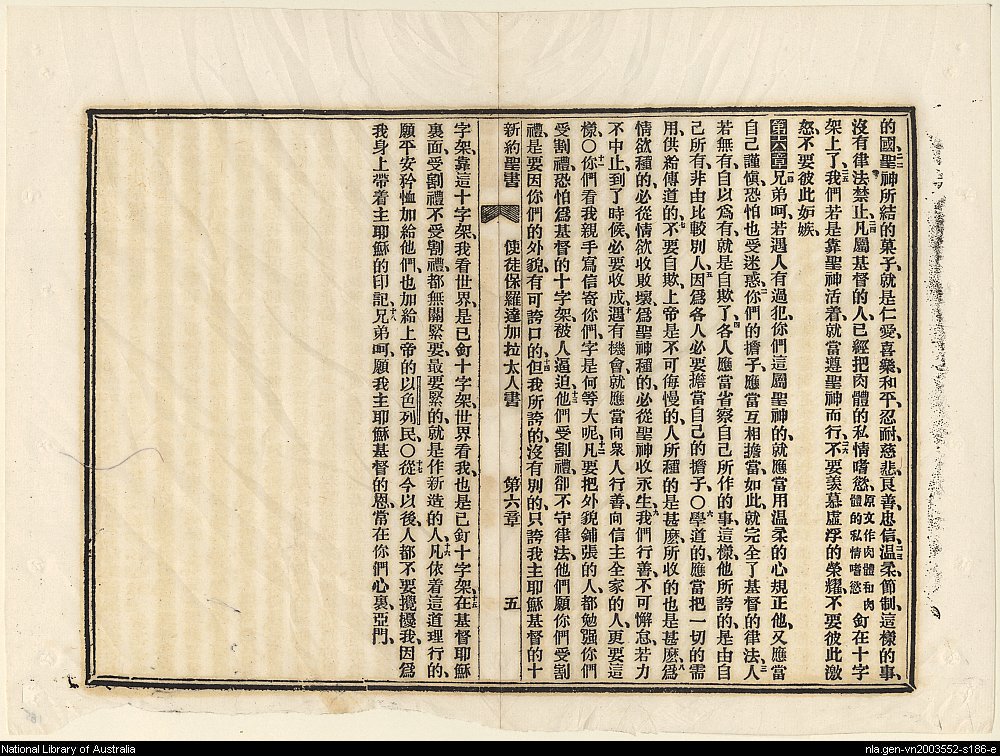 的國二二聖神所結的菓子就是仁愛喜樂和平忍耐慈悲良善忠信二三溫柔節制這樣的事、
沒有律法禁止、二四凡屬基督的人已經把肉體的私情嗜慾原文作肉體和肉體的私情嗜慾釘在十字
架上了、二五我們若是靠聖神活着就當遵聖神而行、二六不要羨慕虛浮的榮耀不要彼此激
怒不要彼此妬嫉、
第六章一兄弟呵、若遇人有過犯你們這屬聖神的就應當用溫柔的心規正他、又應當
自己謹愼恐怕也受迷惑、二你們的擔子、應當互相擔當如此就完全了基督的律法、三人
若無有、自以爲有就是自欺了、四各人應當省察自己所作的事、這樣他所誇的是由自
己所有、非由比較別人、五因爲各人必要擔當自己的擔子、〇六學道的應當把一切的需
用供給傳道的、七不要自欺、上帝是不可侮慢的、人所種的是甚麼所收的也是甚麼、八爲
情欲種的必從情欲收敗壞爲聖神種的必從聖神收永生、九我們行善不可懈怠、若力
不中止、到了時候必要收成、十遇有機會就應當向衆人行善向信主全家的人更要這
樣、〇十一你們看我親手寫信寄你們、字是何等大呢、十二凡要把外貌鋪張的人、都勉强你們
受割禮、恐怕爲基督的十字架被人逼迫、十三他們受割禮、卻不守律法、他們願你們受割
禮是要因你們的外貌有可誇口的、十四但我所誇的沒有別的只誇我主耶穌基督的十
新約聖書 使徒保羅達加拉太人書 第六章 五
字架、靠這十字架、我看世界、是已釘十字架、世界看我、也是已釘十字架、十五在基督耶穌
裏面、受割禮不受割禮、都無關緊要、最要緊的就是作新造的人、十六凡依着這道理行的、
願平安矜恤加給他們、也加給上帝的以色列民、〇十七從今以後、人都不要攪擾我、因爲
我身上帶着主耶穌的印記、十八兄弟呵願我主耶穌基督的恩常在你們心裏、亞們、
nla.gen-vn2003552-s186-e
National Library of Australia